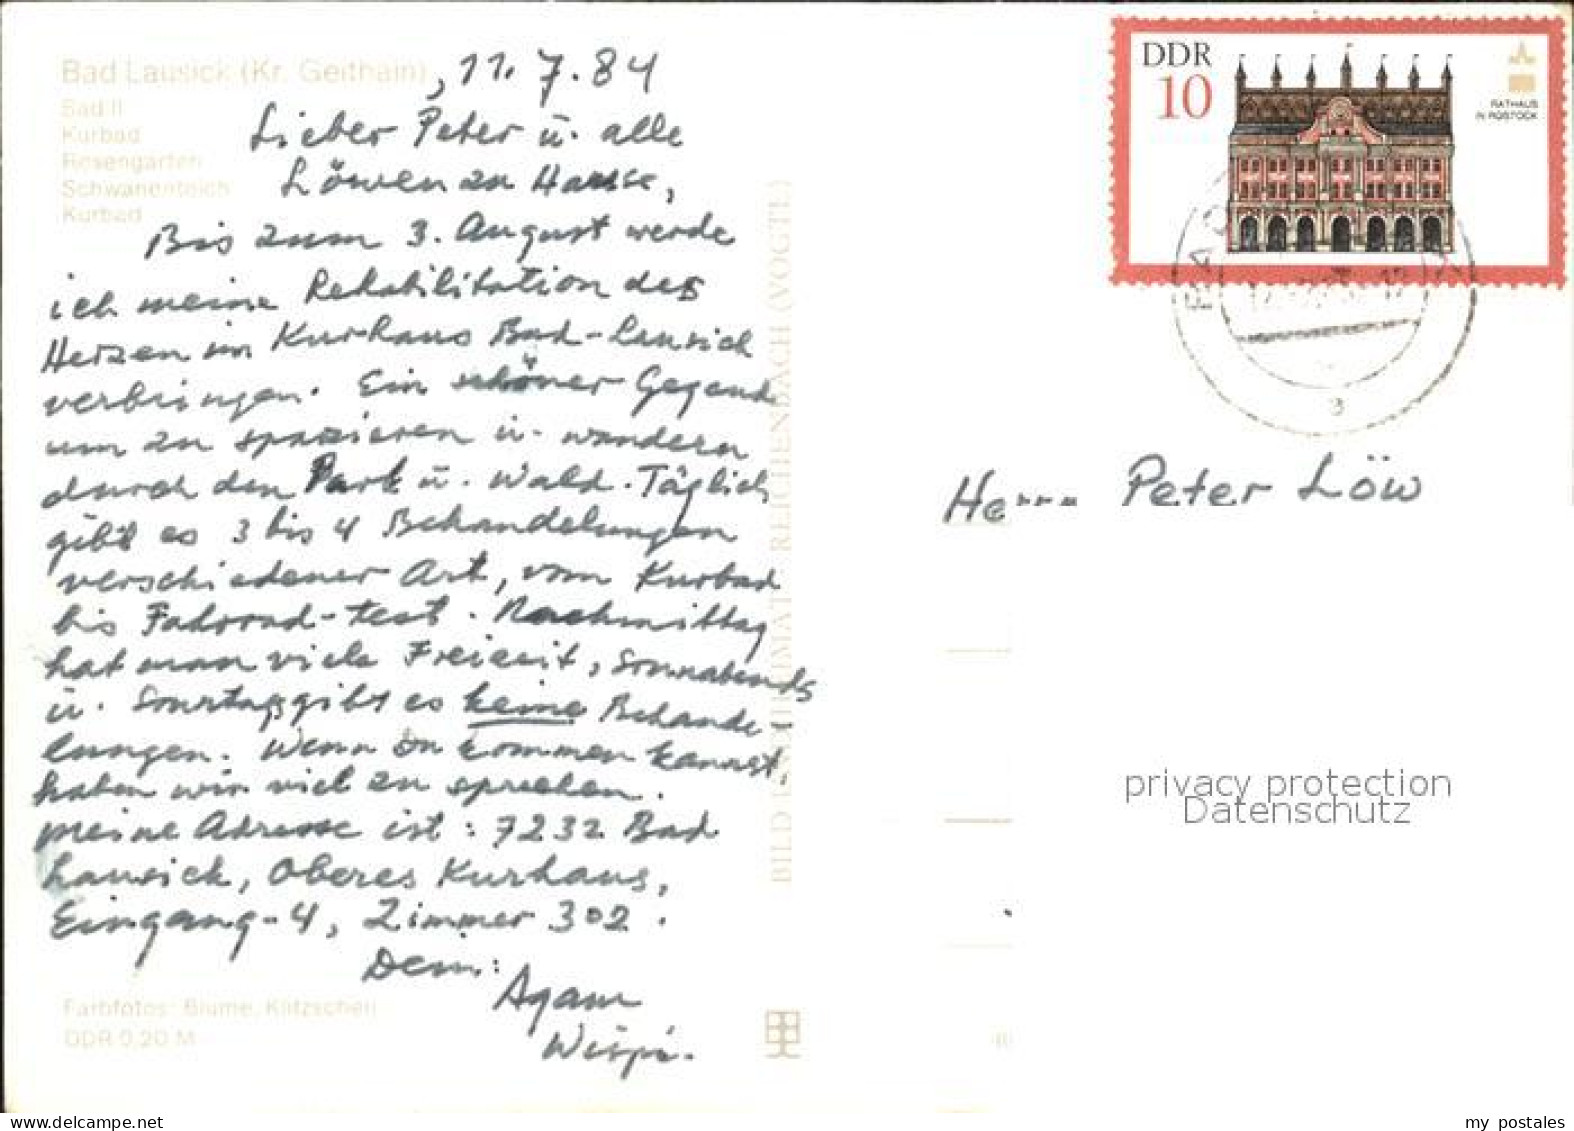 Bad Lausick (Kr. Geithain)
Bad II
Kurbad
Rosengarten
Schwanenteich
Kurbad
, 11. 7. 84
Lieber Peter u. alle
Löwen zu Hause,
Bis zum 3. August werde
ich meine Rehabilitation des
Herzen im Kurhaus Bad-Lausick
verbringen. Ein schöner Gegend
um zu spazieren u. wandern
durch den Park u. Wald. Täglich
gibt es 3 bis 4 Behandelungen
verschiedener Art, vom Kurbad
bis Fahrrad-test. Nachmittag
hat man viele Freizeit, Sonnabends
u. Sonntags gibt es keine Behande-
lungen. Wenn Du kommen kannst,
haben wir viel zu sprechen.
Meine Adresse ist: 7232 Bad
Lausick, Oberes Kurhaus,
Eingang-4, Zimmer 302.
Dein:
Agam
Farbfotos: Blume,
DDR 0,20 M
BILD UND HEIMAT REICHENBACH (VOGTL)
DDR
10
RATHAUS
IN ROSTOCK
Herrn Peter Löw
privacy protection
Datenschutz
my postales